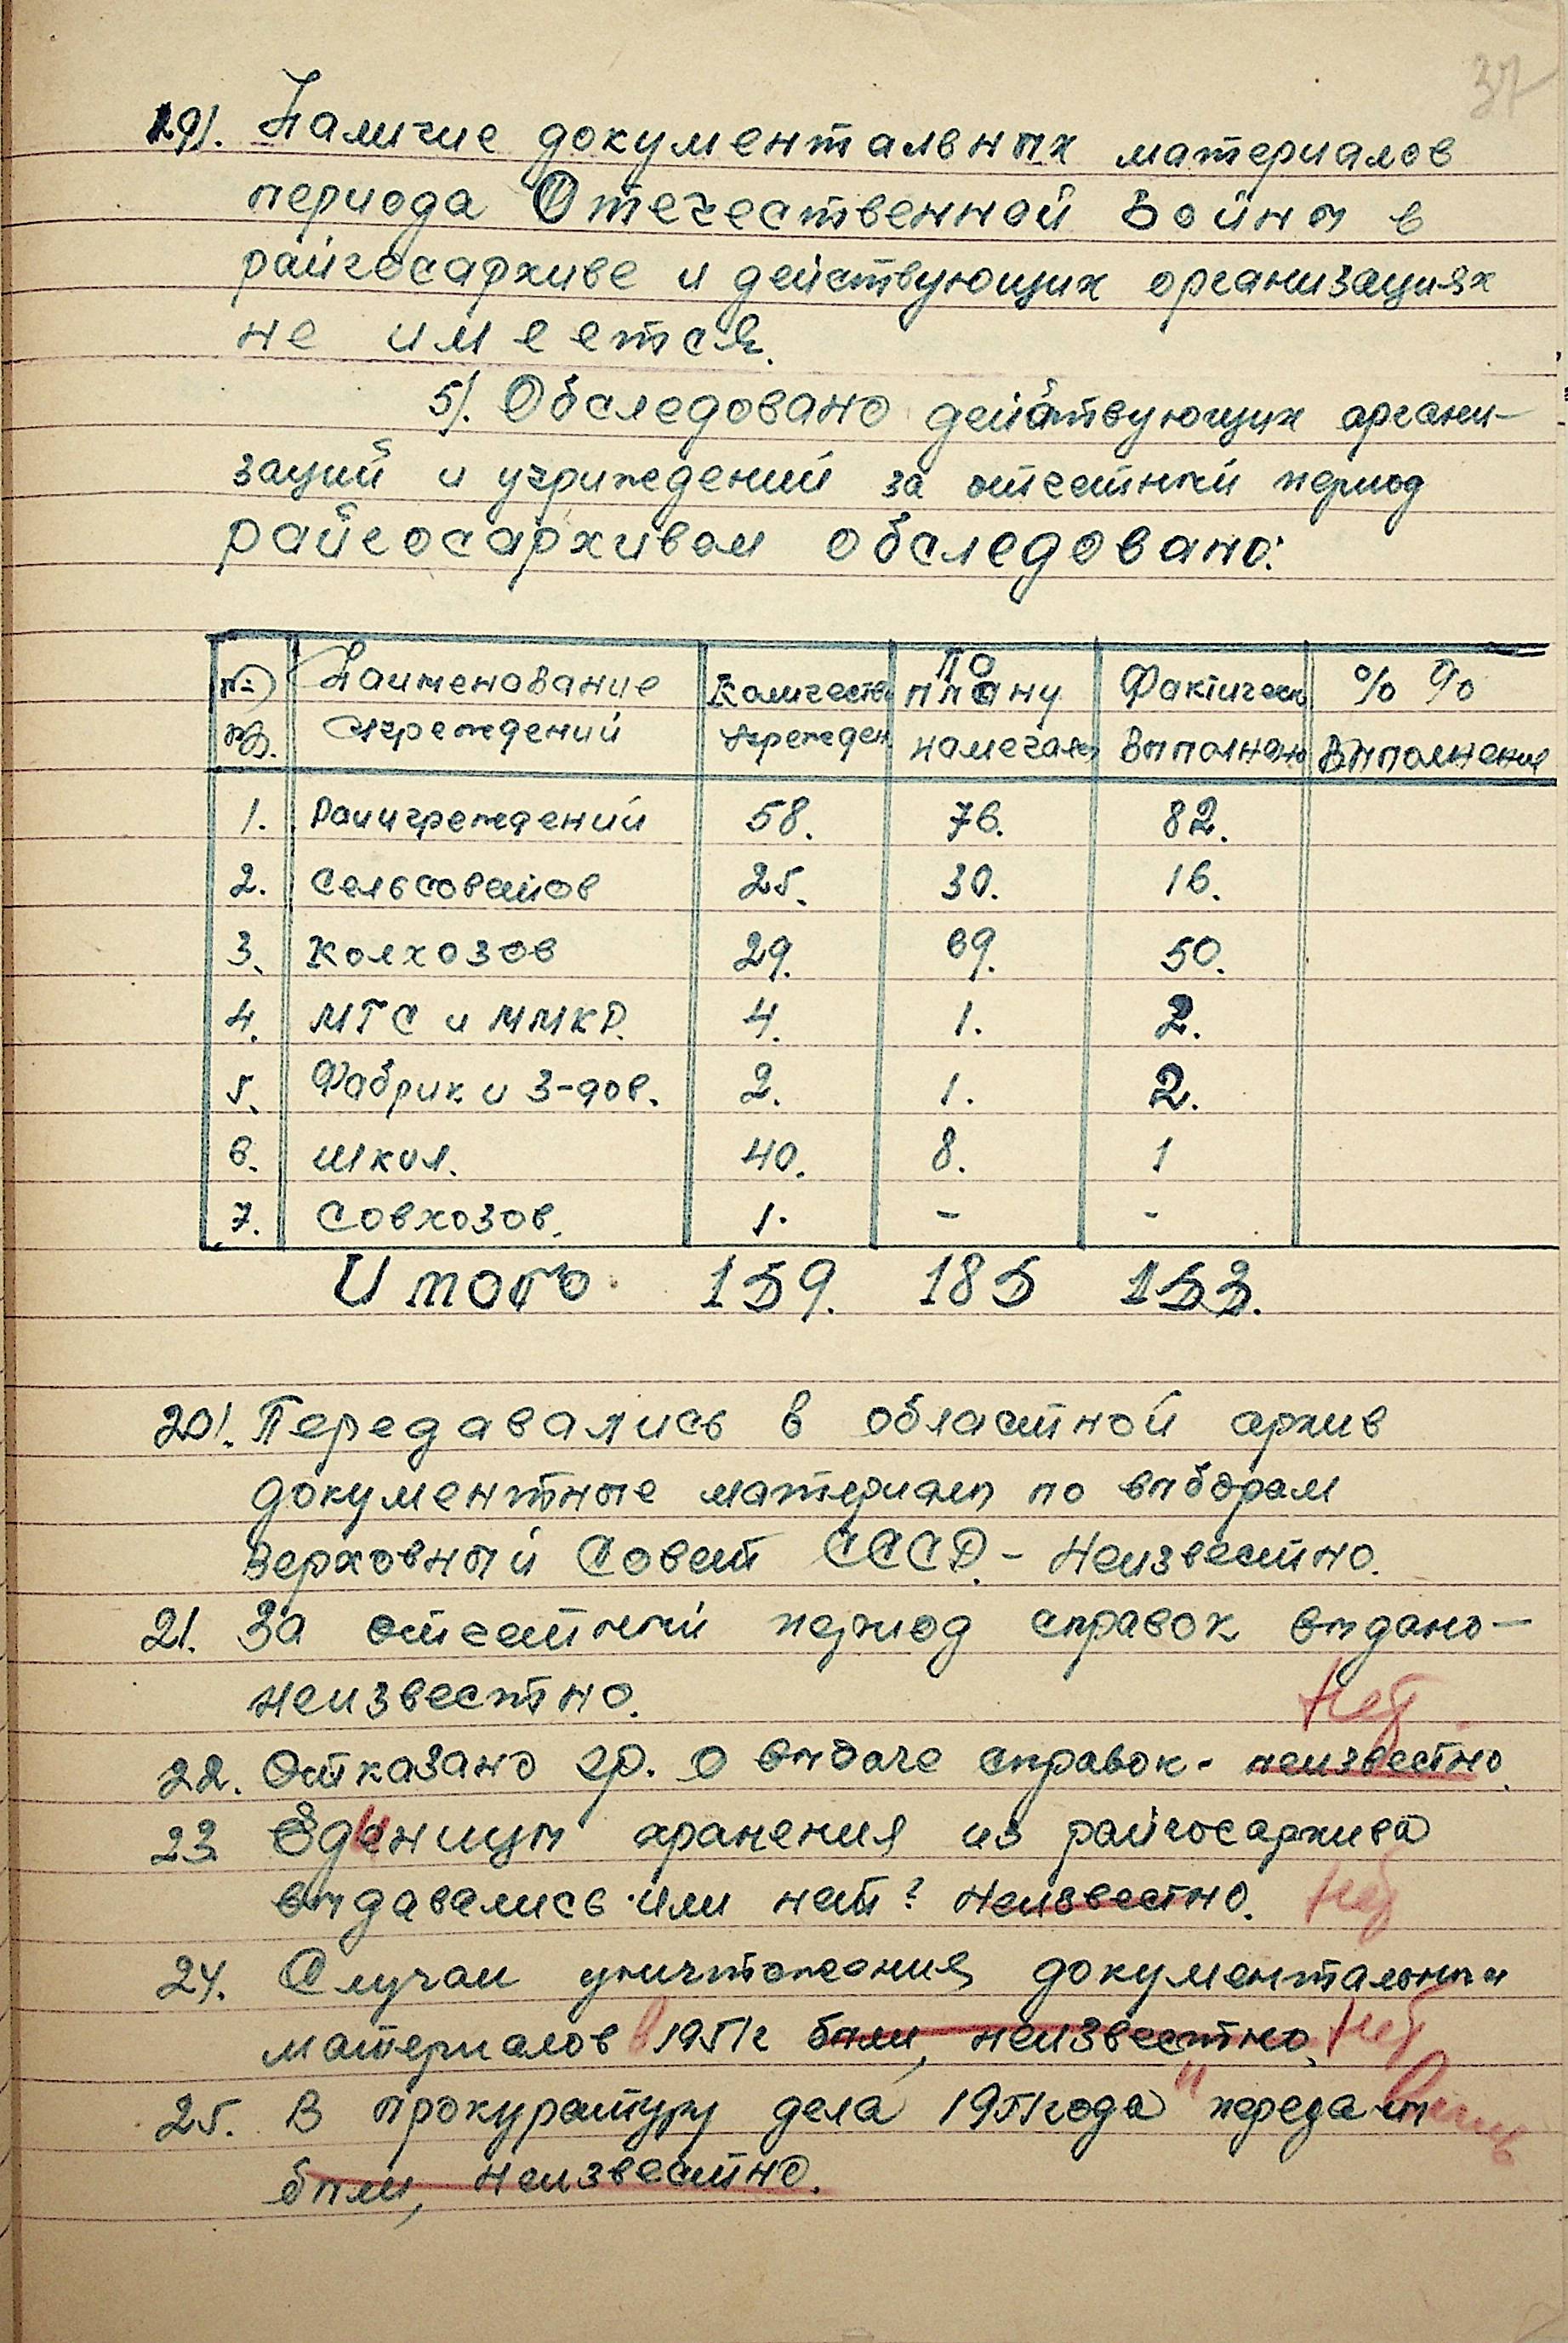 37
19). Наличие документальных материалов
периода Отечественной Войны в
райгосархиве и действующих организациях
не имеется.
5). Обследовано действующих органи-
заций и учреждений за отчетный период
райгосархивом обследовано:
№№ Наименование Количеств По плану Фактическ % %
пп. учреждений учрежден намечалось выполнено выполнения
1. Райучреждений 58. 76. 82.
2. Сельсоветов 25. 30. 16.
3. Колхозов 29. 69. 50.
4. МТС и ММКР. 4. 1. 2.
5. Фабрик и з-дов. 2. 1. 2.
6. школ. 40. 8. 1
7. Совхозов. 1. - -
Итого 159. 185 153.
20). Передавались в областной архив
документные материалы по выборам
Верховный Совет СССР. - Неизвестно.
21. За отчетный период справок выдано-
неизвестно.
нет
22. Отказано гр. о выдаче справок - неизвестно.
23 Единицы хранения из райгосархива
выдавались или нет? Неизвестно. нет
24. Случаи уничтожения документальных
материалов в 1951г были, неизвестно. нет
25. В прокуратуру дела 1951 года " передавались
были, неизвестно.